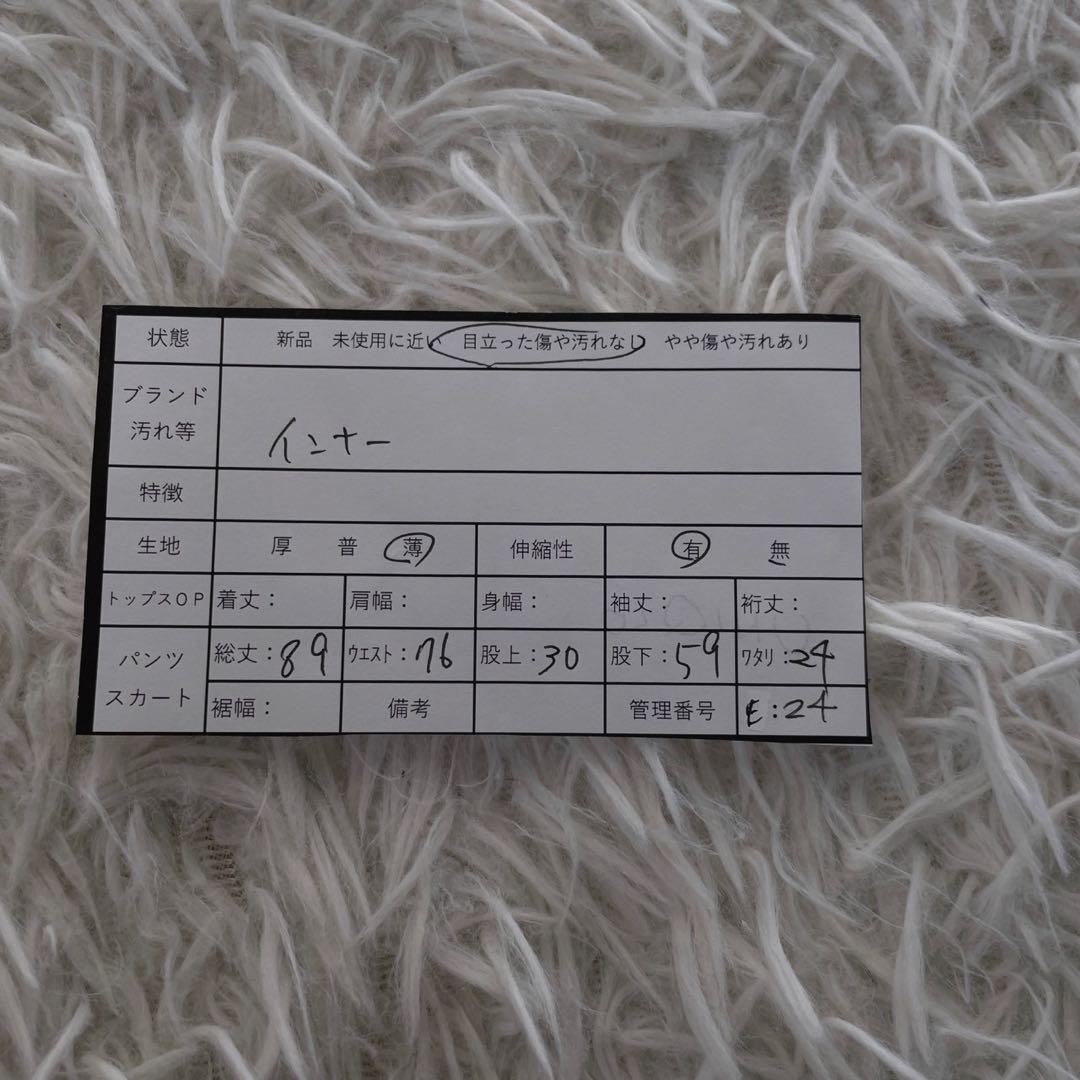 状態 新品 未使用に近い 目立った傷や汚れなし やや傷や汚れあり
ブランド
汚れ等 インナー
特徴
生地 厚 普 薄 伸縮性 有 無
トップスOP 着丈: 肩幅: 身幅: 袖丈: 裄丈:
パンツ
スカート 総丈:89 ウエスト:76 股上:30 股下:59 ワタリ:24
裾幅: 備考 管理番号 E:24